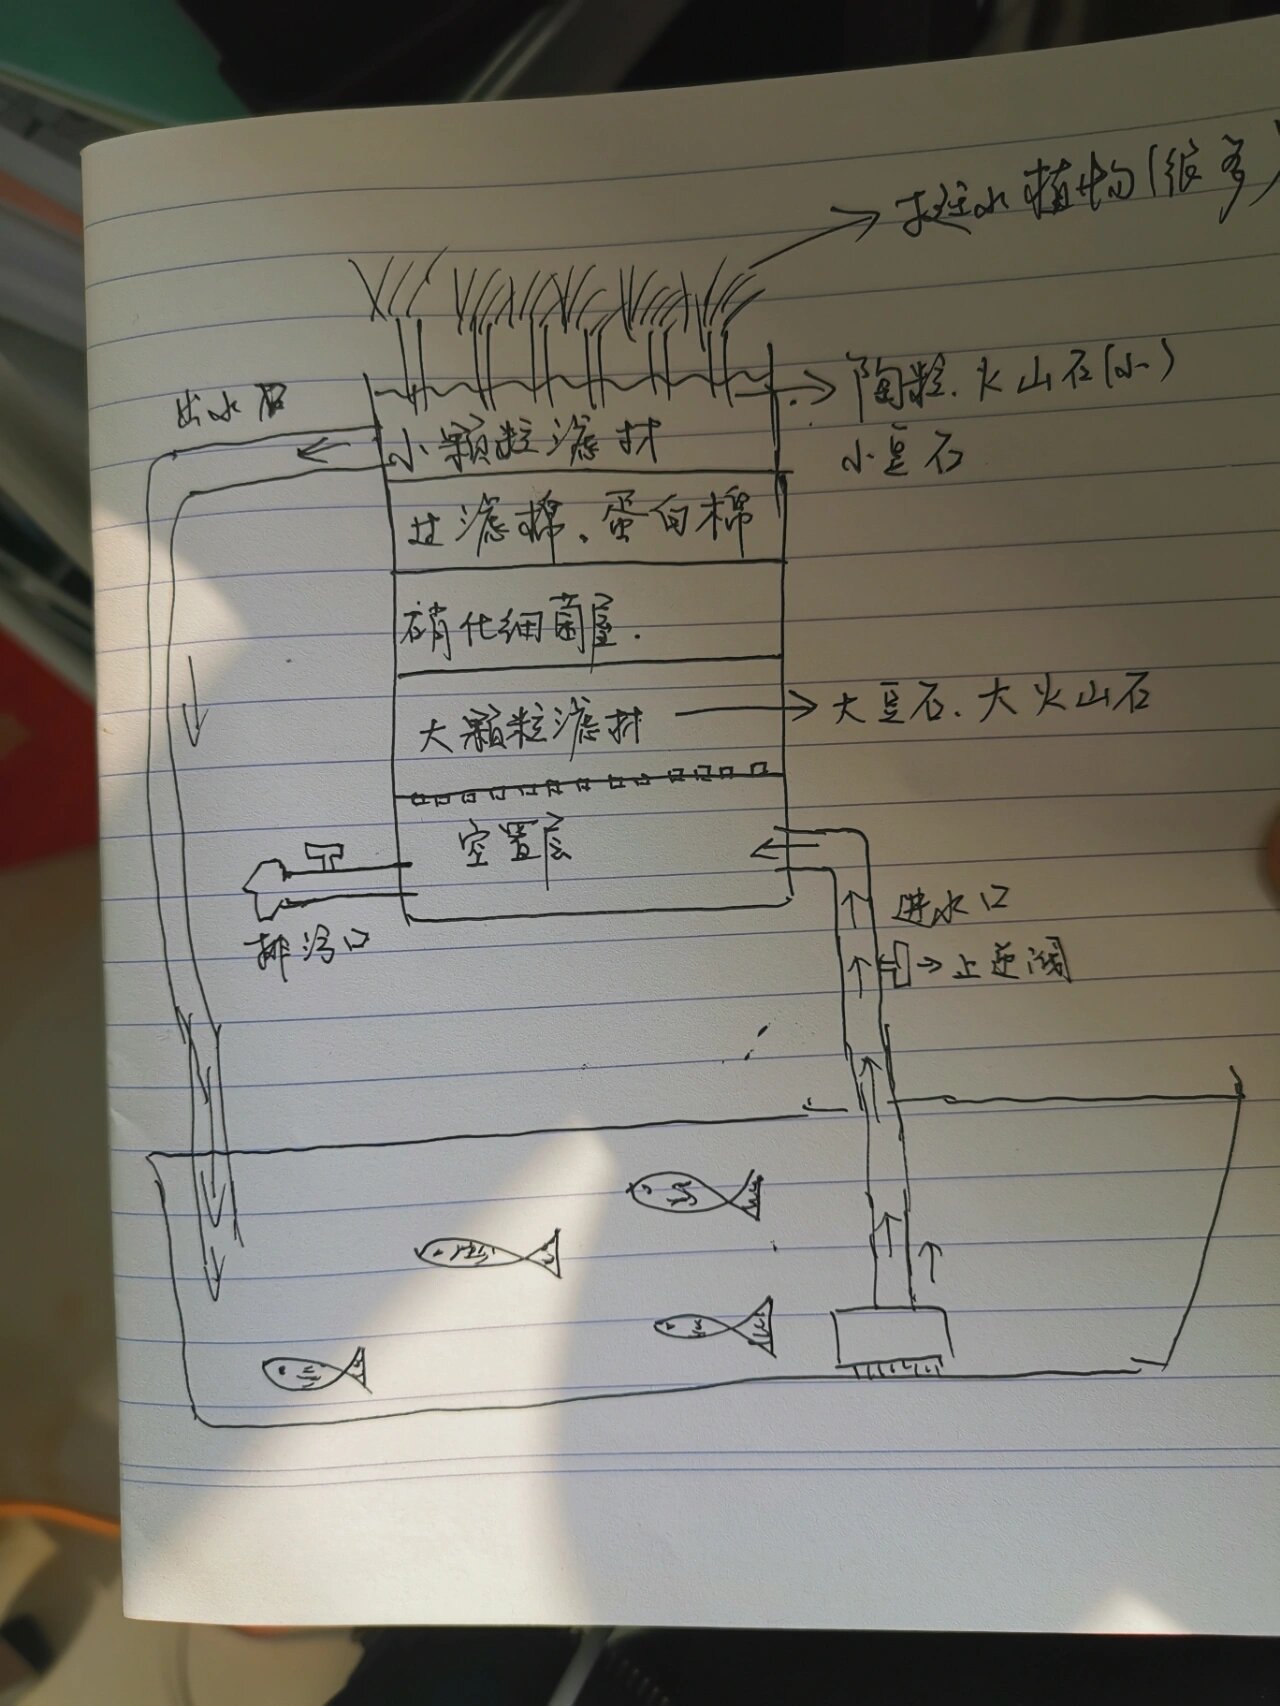 挺水植物(很多)
陶粒、火山石(小)
小豆石
出水口
小颗粒滤材
过滤棉、蛋白棉
硝化细菌屋.
大颗粒滤材
大豆石、大火山石
空置层
进水口
止逆阀
排污口